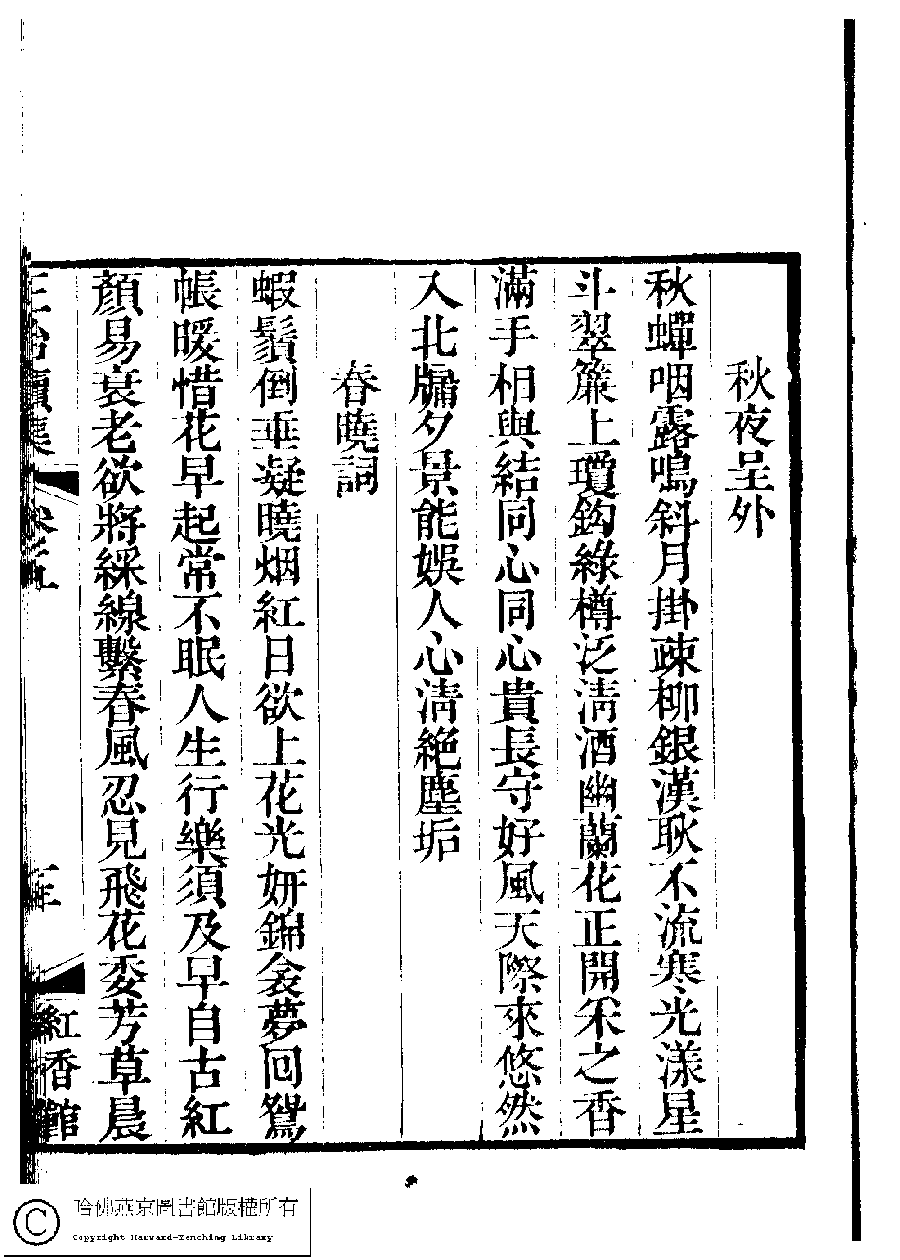 秋夜呈外
秋蟬咽露鳴斜月掛疎柳銀漢耿不流寒光漾星
斗翠簾上瓊鈎綠樽泛淸酒幽蘭花正開采之香
滿手相與結同心同心貴長守好風天際來悠然
入北牖夕景能娛人心淸絕塵垢
春曉詞
蝦鬚倒垂凝曉烟紅日欲上花光妍錦衾夢回鴛
帳暖惜花早起常不眠人生行樂須及早自古紅
顏易衰老欲將綵線繫春風忍見飛花委芳草晨
集
紅香館
哈佛燕京圖書館版權所有
Copyright Harvard-Yenching Library